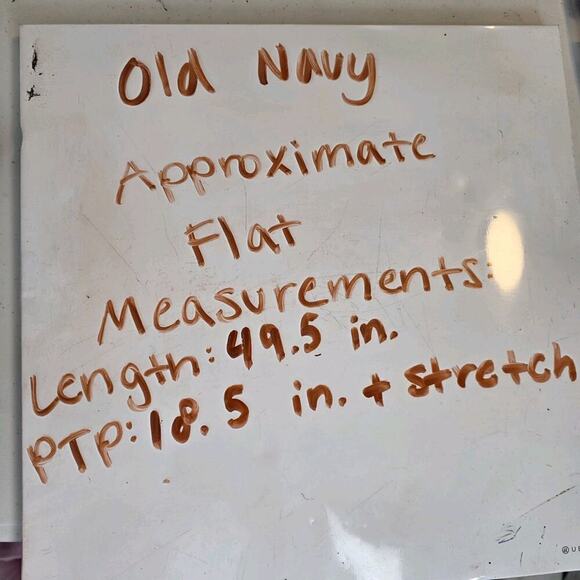 Old Navy
Approximate
Flat
Measurements:
Length: 49.5 in.
PTP: 18.5 in. + stretch